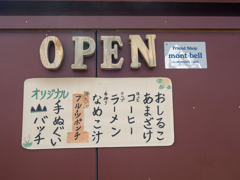 OPEN
Friend Shop
mont-bell
おしるこ
あまざけ
コーヒー
ラーメン
なめこ汁
フルーツポンチ
オリジナル
手ぬぐい
バッチ